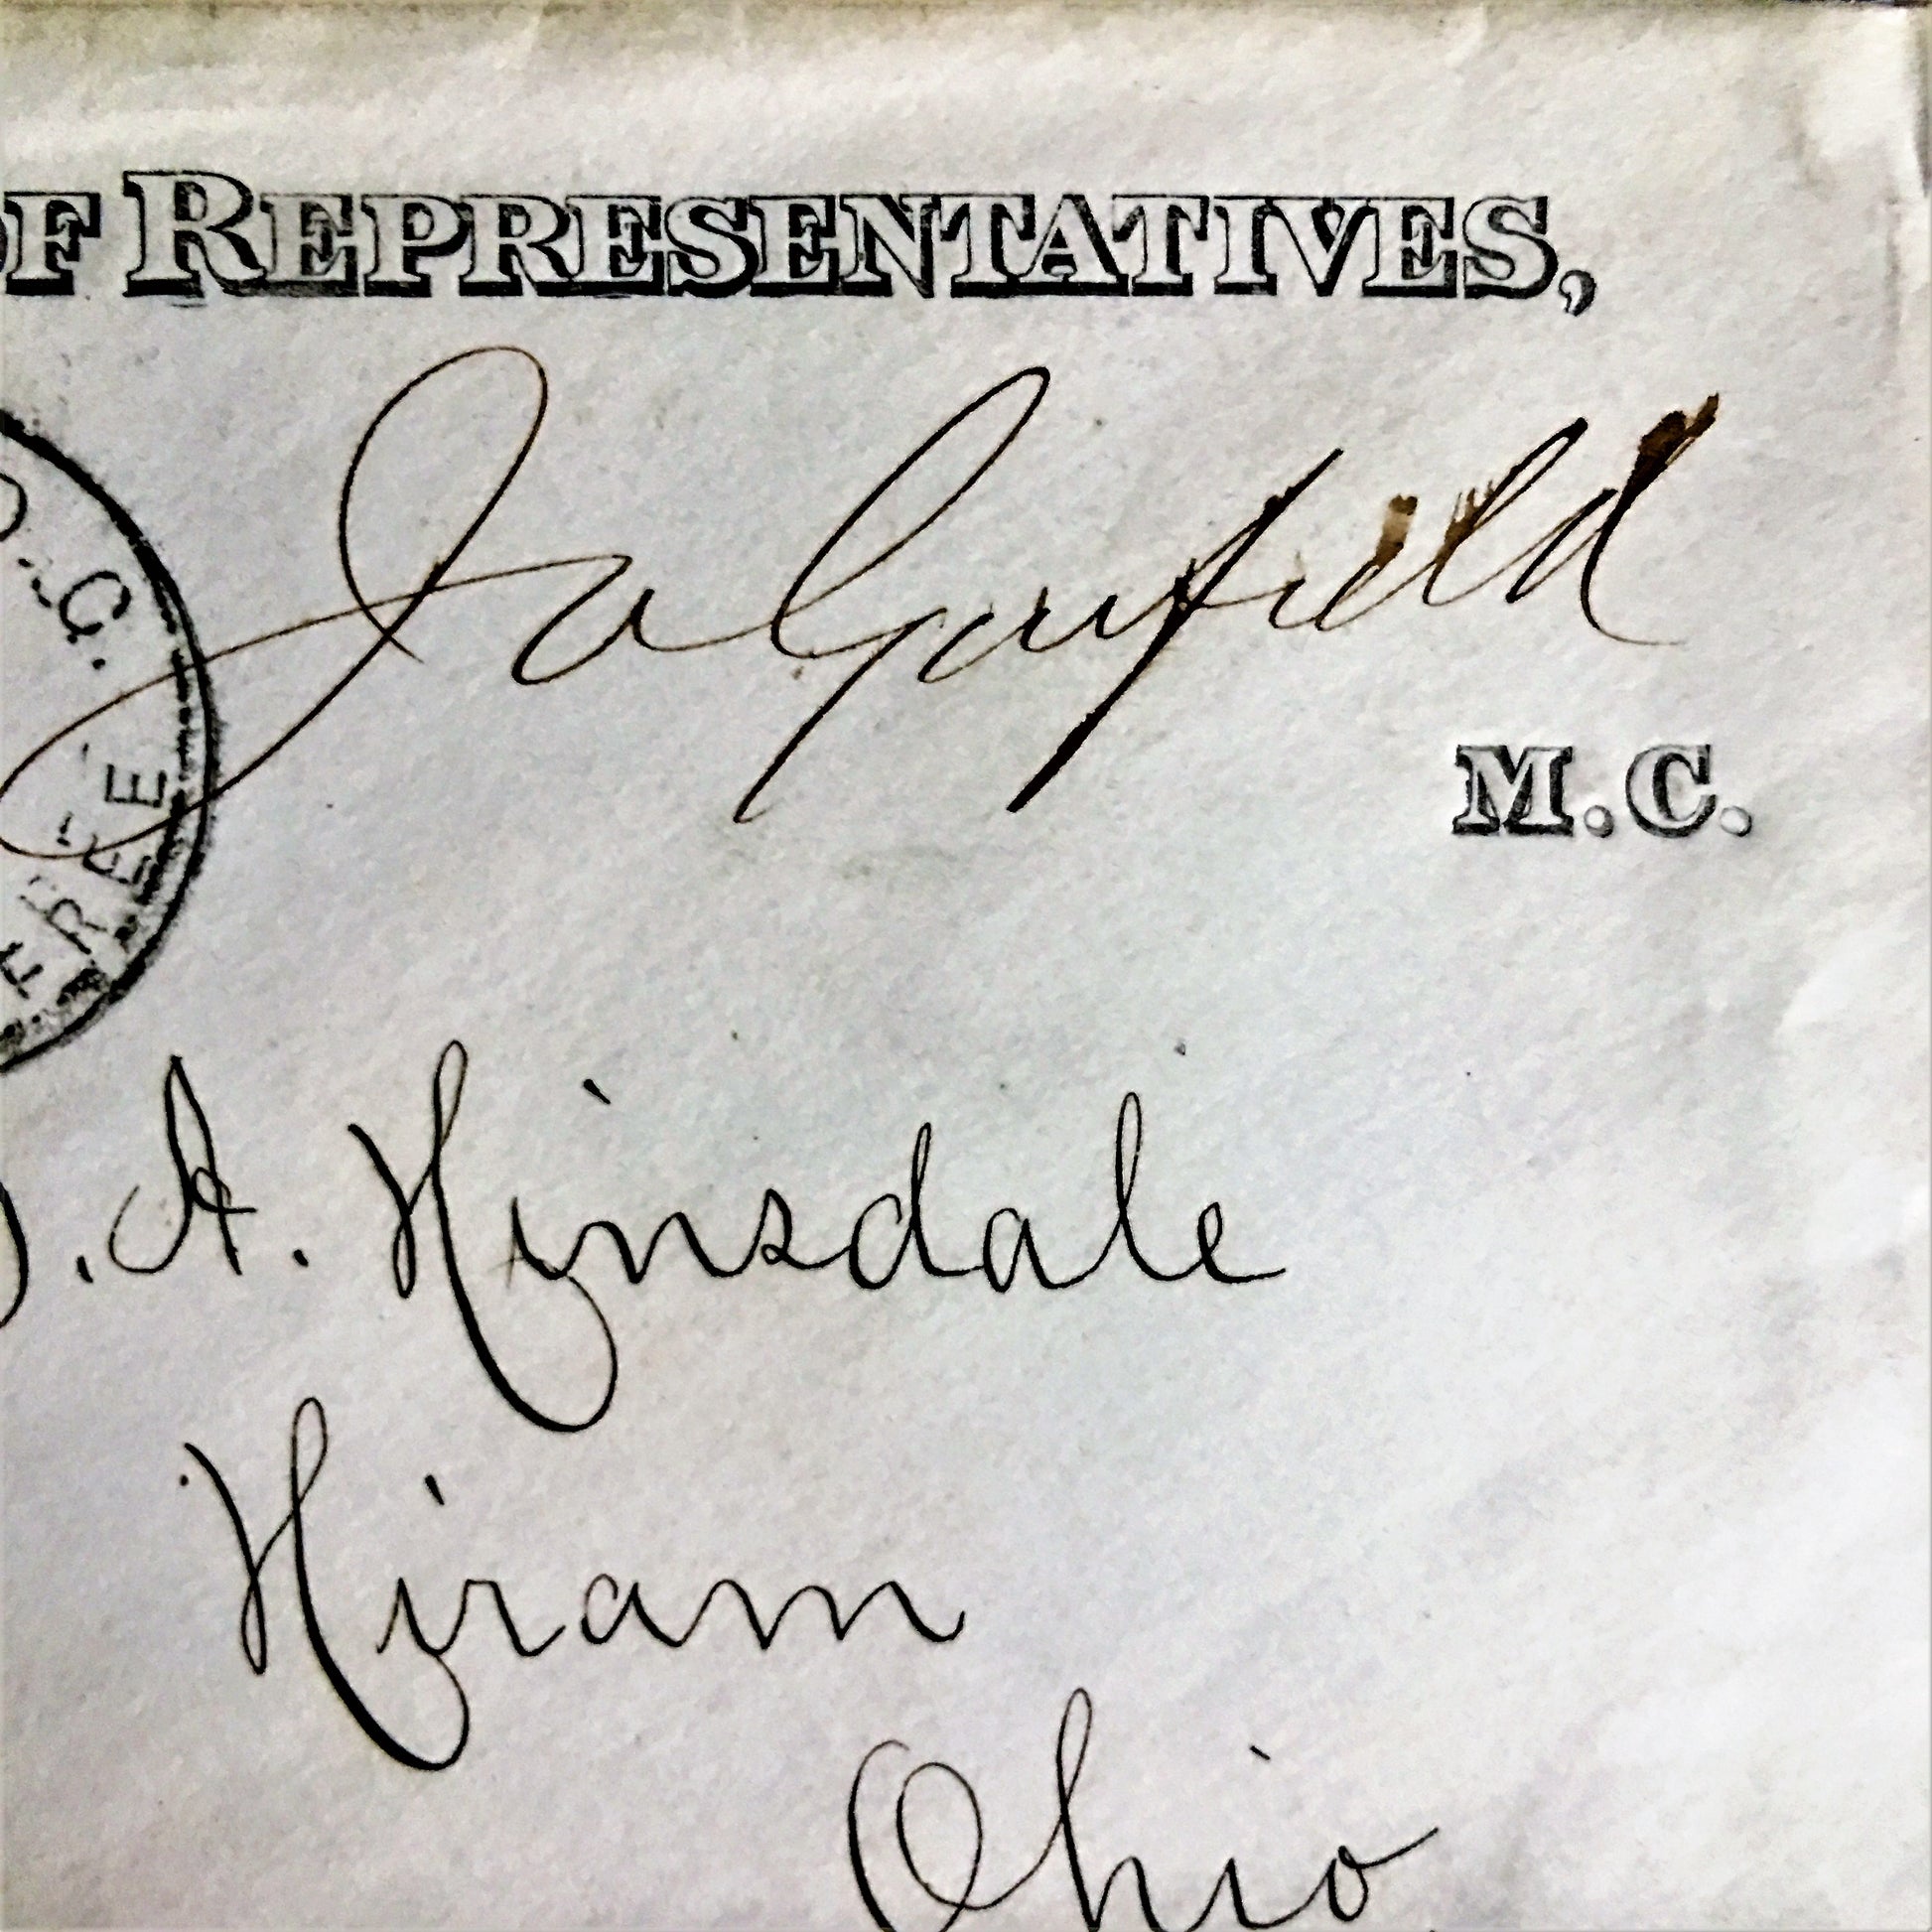 OF REPRESENTATIVES,
JAGarfield
M.C.
D.C.
FREE
. A. Hinsdale
Hiram
Ohio